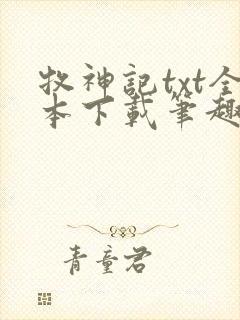 牧神記txt全
本下載筆趣
青童君